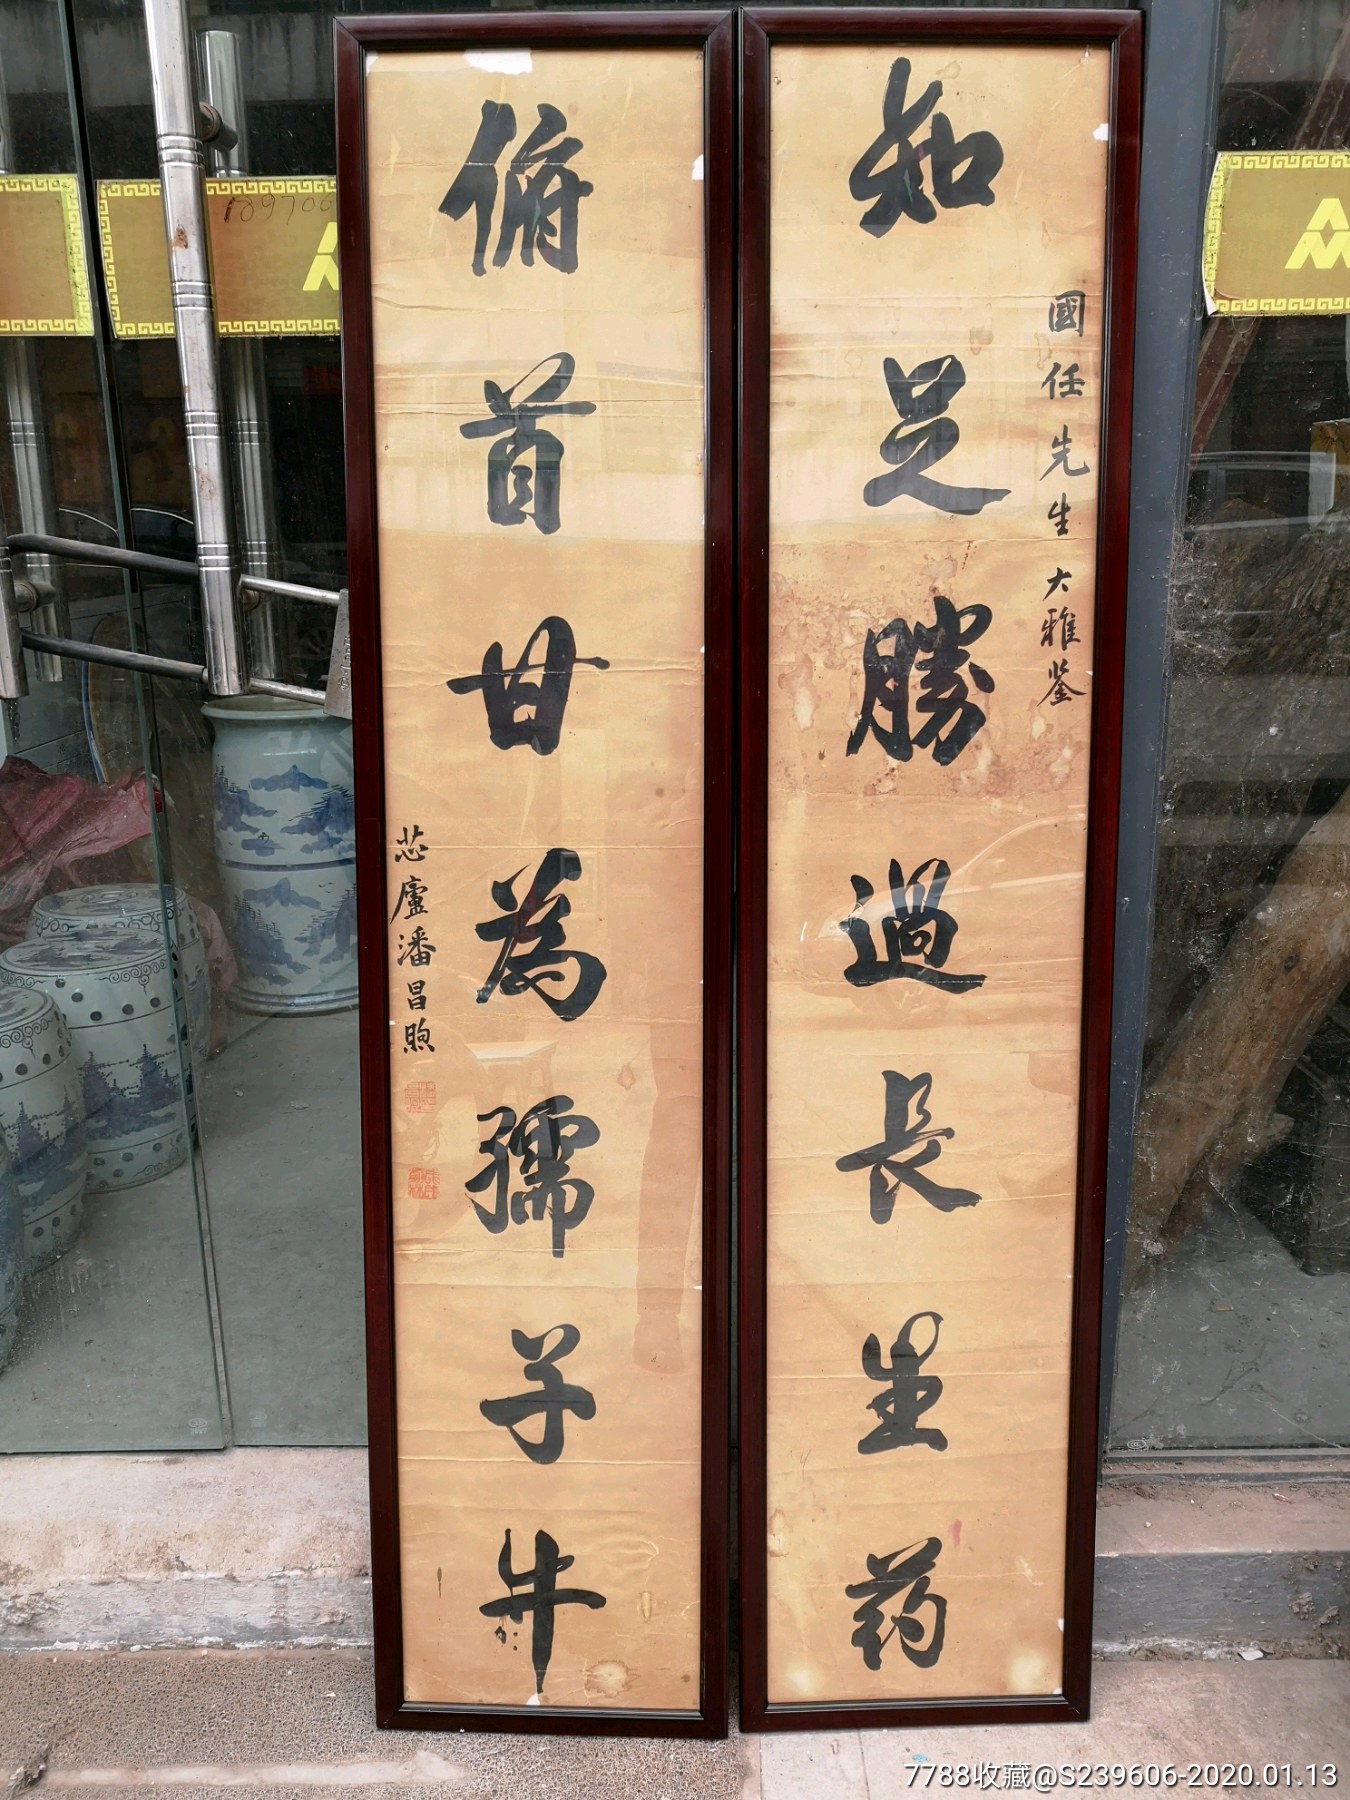 知足勝過長生药
國任先生大雅鉴
俯首甘為孺子牛
芯廬潘昌煦
189700
7788收藏@S239606-2020.01.13